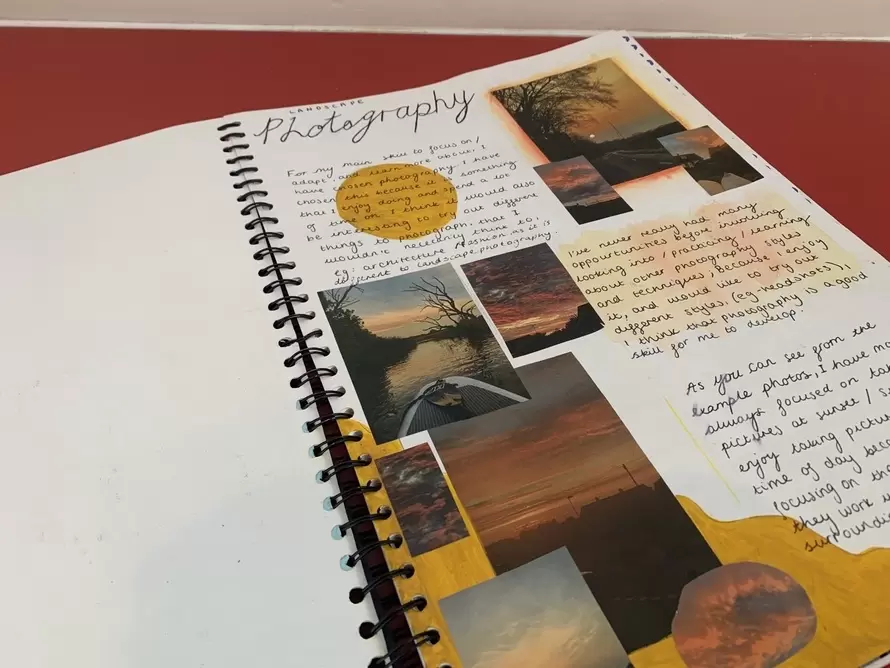 LANDSCAPE
Photography
For my main skill to focus on /
adapt and learn more about, I
have chosen photography. I have
chosen this because it is something
that I enjoy doing and spend a lot
of time on. I think it would also
be interesting to try out different
things to photograph, that I
wouldn't necessarily think to,
Eg: architecture / fashion, as it is
different to landscape photography.
I've never really had many
opportunities before involving
looking into / producing / learning
about other photography styles
and techniques. Because I enjoy
it, and would like to try out
different styles, (eg. headshots),
I think that photography is a good
skill for me to develop.
As you can see from the
example photos, I have
always focused on
pictures at sunset /
enjoy taking
time of day
focusing on
they work